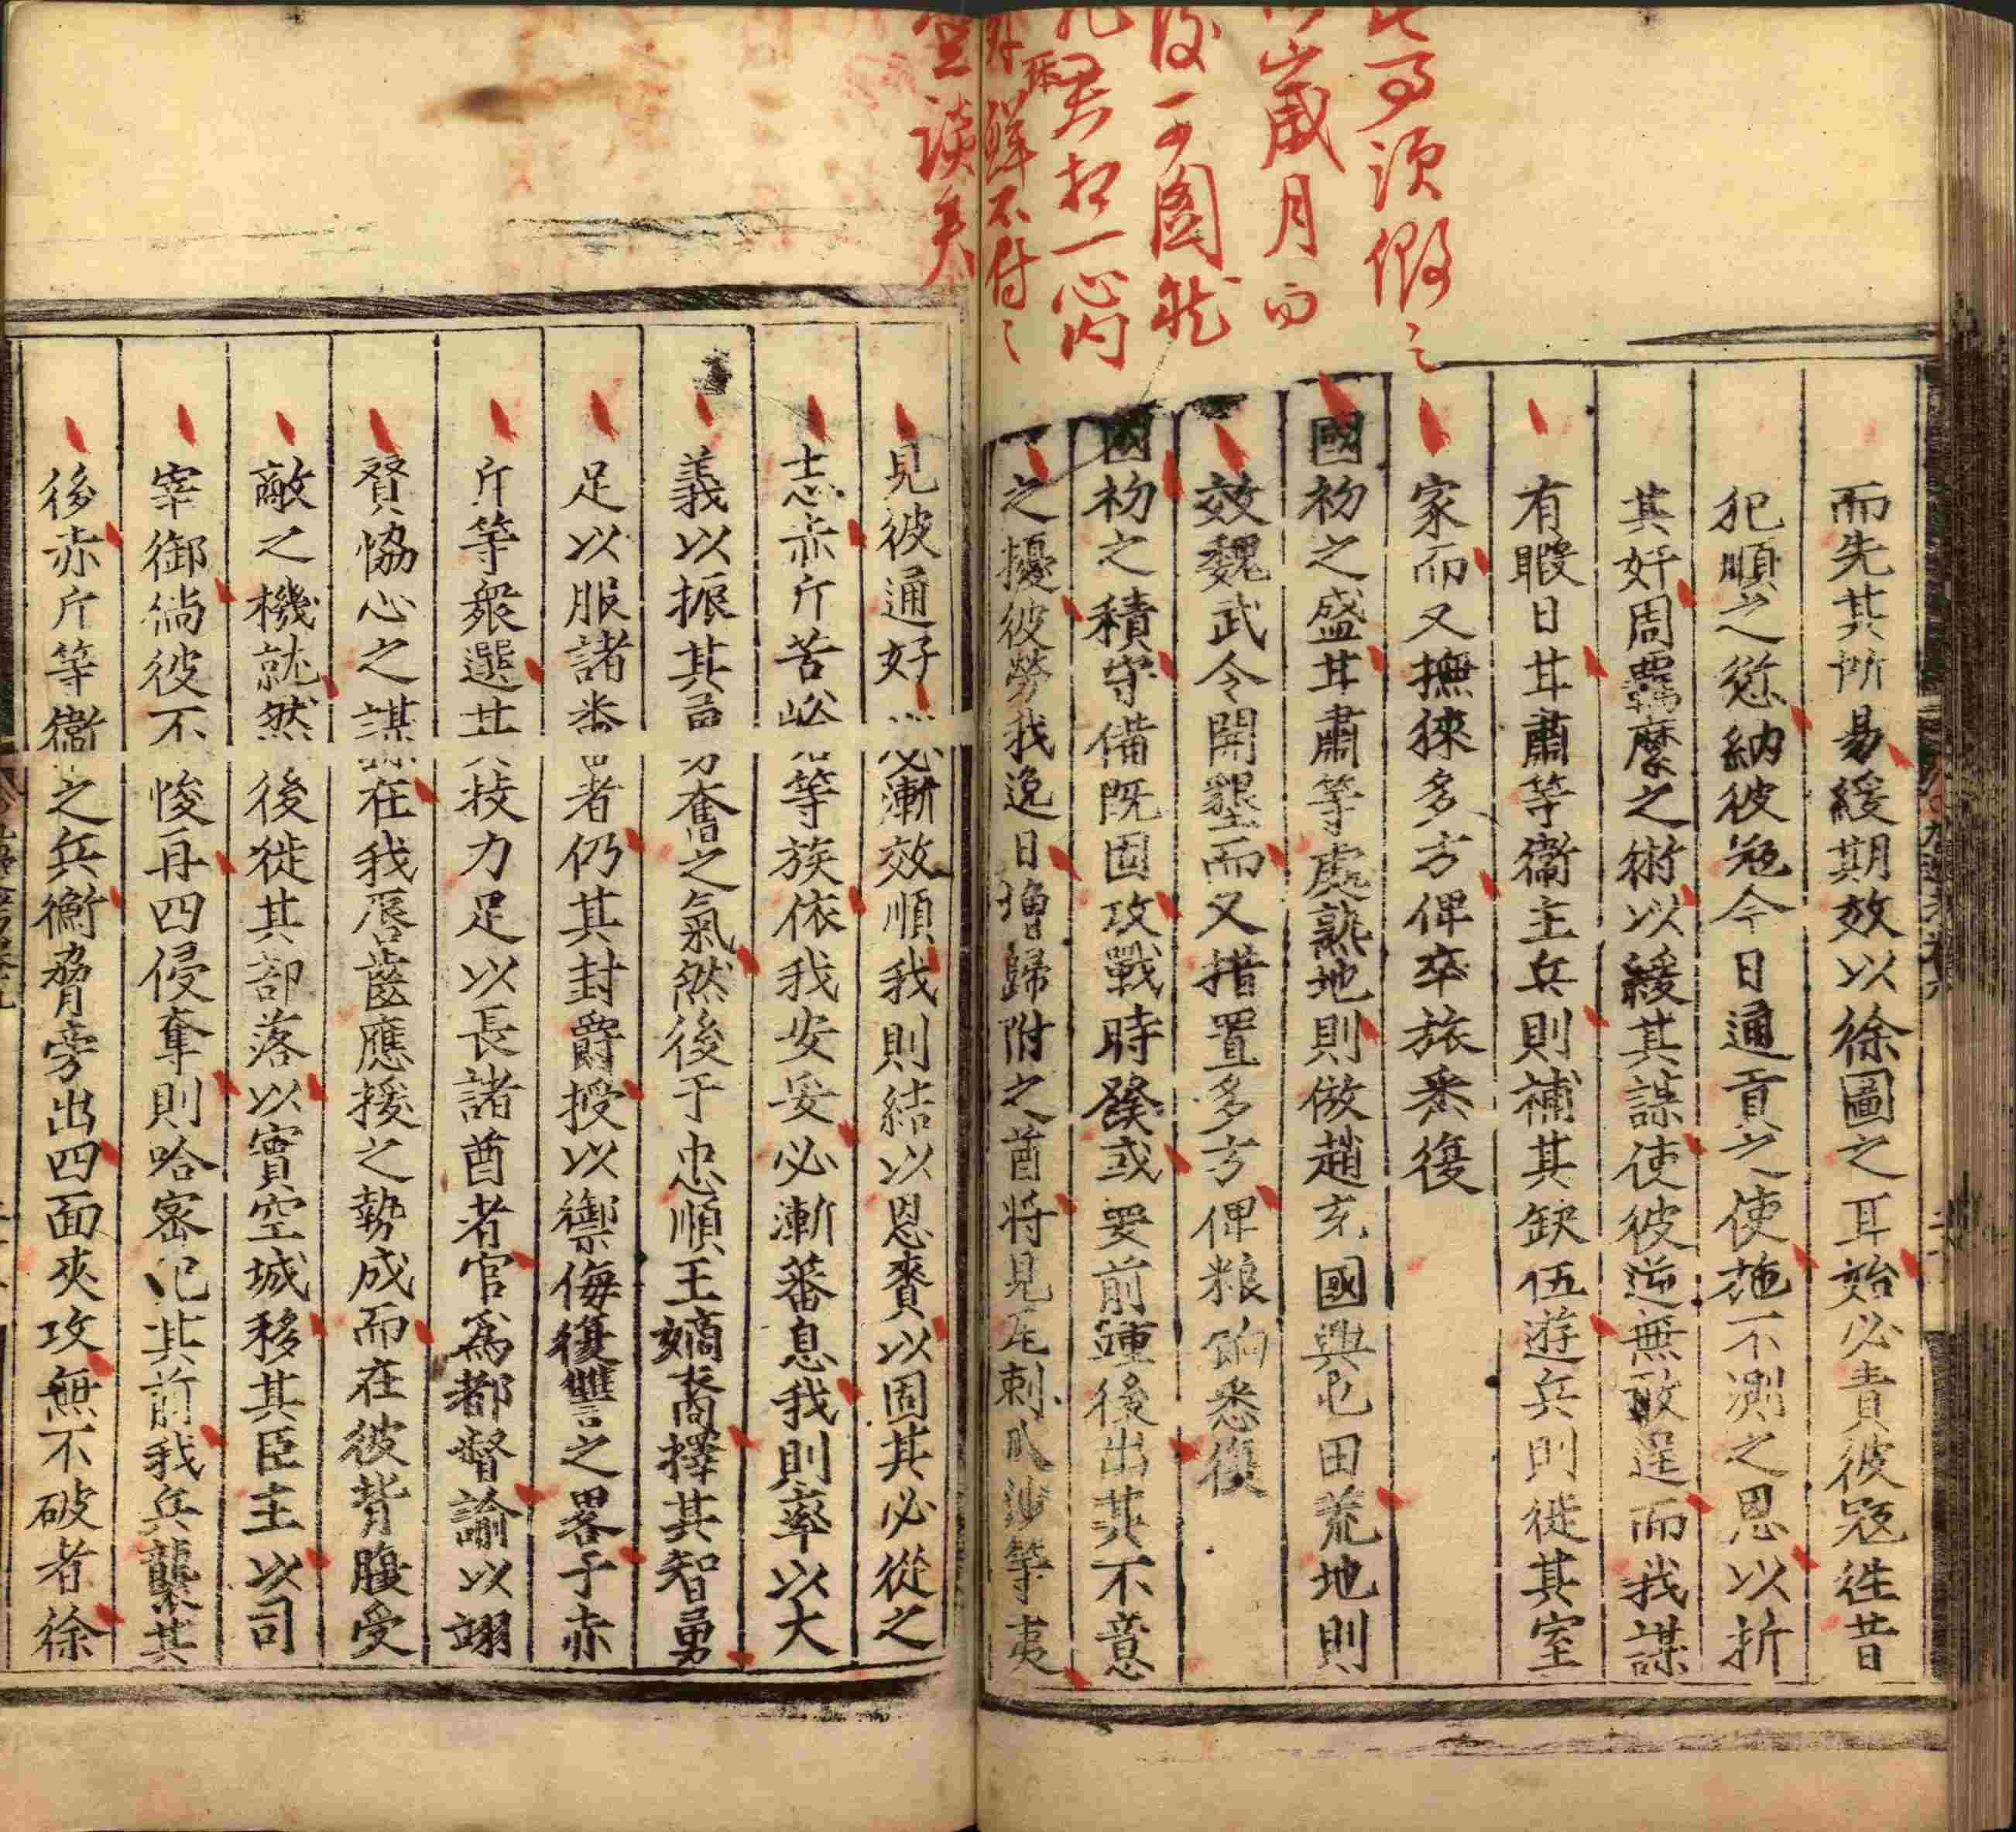 須假之
歲月而
後可圖然
君相一心內
外鮮不付之
空談矣
而先其所易緩期效以徐圖之耳始必責彼寇徃昔
犯順之愆納彼寇今日通貢之使施不測之恩以折
其奸周羈縻之術以緩其謀使彼逆無敢逞而我謀
有暇日甘肅等衞主兵則補其缺伍遊兵則徙其室
家而又撫徠多方俾卒旅悉復
國初之盛甘肅等處熟地則倣趙充國興屯田荒地則
效魏武令開墾而又措置多方俾粮餉悉復
國初之積守備既固攻戰時發或要前踵後出其不意
之擾彼勞我逸日增歸附之酋將見瓦剌爪沙等夷
見彼通好必漸效順我則結以恩賚以固其必從之
志赤斤苦峪等族依我安妥必漸蕃息我則率以大
義以振其奮之氣然後于忠順王嫡裔擇其智勇
足以服諸番者仍其封爵授以禦侮復讐之畧于赤
斤等衆選其技力足以長諸酋者官爲都督諭以翊
賛恊心之謀在我唇齒應援之勢成而在彼背腹受
敵之機就然後徙其部落以實空城移其臣主以司
宰御倘彼不悛再四侵奪則哈密犯其前我兵襲其
後赤斤等衞之兵衝脅旁出四面夾攻無不破者徐